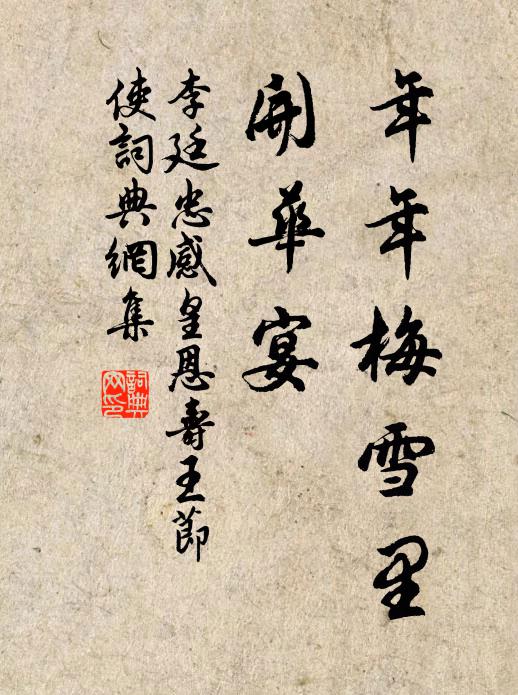 年年梅雪里
開華宴
李廷忠感皇恩壽王節
使詞典網集
詞典網印